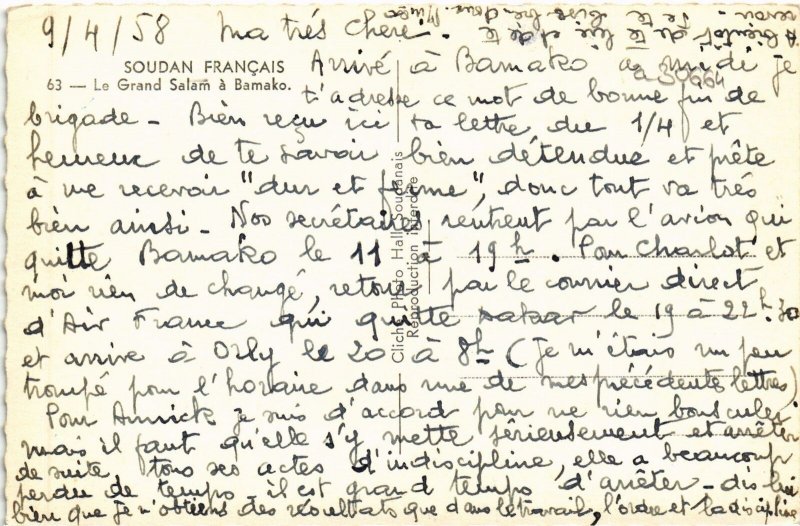 9/4/58 Ma trés chere -
SOUDAN FRANÇAIS
63 — Le Grand Salam à Bamako.
Arrivé à Bamako a midi je
t'adresse ce mot de bonne fin de
brigade - Bièn reçu ici ta lettre du 1/4 et
heureux de te savoir bièn détendue et prête
à me recevoir "dur et ferme", donc tout va trés
bièn ainsi - Nos secrétaires rentrent par l'avion qui
quitte Bamako le 11 à 19h. Pour Charlot et
moi rièn de changé, retour par le courrier direct
d'Air France qui quitte Dakar le 19 à 22h.30
et arrive à Orly le 20 à 8h (Je m'étais un peu
trompé pour l'horaire dans une de mes précédentes lettres)
Pour Annick je suis d'accord pour ne rien bousculer
mais il faut qu'elle s'y mette sérieusement et arrêter
de suite tous ses actes d'indiscipline, elle a beaucoup
perdu de temps - il est grand temps d'arrêter - dis lui
bièn que je n'obtiens des résultats que dans le travail, l'ordre et la discipline
A bientôt de te lire et de te
revoir - Je te bise bien doux.
Cliché Photo Hall Soudanais
Reproduction interdite